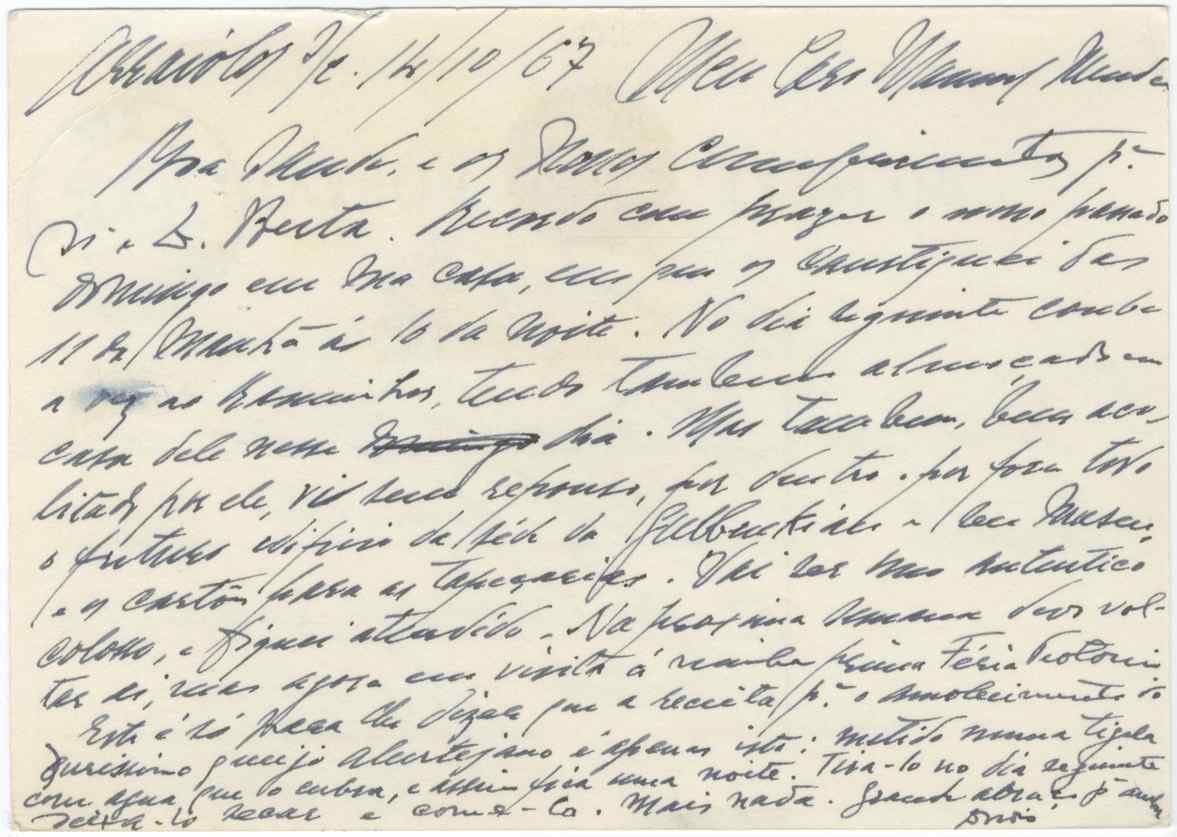 Arraiólos, 14/10/67 Meu Caro Manuel Mendes
Boa Saude, e os nossos cumprimentos pª
si e D. Berta. Recordo com prazer o nosso passado
domingo em sua casa, em que os castiguei das
11 da manhã ás 10 da noite. No dia seguinte coube
a vez ao Raminhos, tendo tambem almoçado em
casa dele nesse dia. Mas tambem, bem aco-
litado por ele, vi sem repouso, por dentro e por fora todo
o futuro edificio da séde da Gulbenkian e seu Museu,
e os cartões para as tapeçarias. Vai ser um autentico
colosso, e fiquei aturdido. Na proxima semana devo vol-
tar aí, mas agora em visita á minha prima
Este é só para lhe dizer que a receita pª o amolecimento do
durissimo queijo alentejano é apenas isto: metido numa tigela
com agua, que o cubra, e assim fica uma noite. Tira-lo no dia seguinte
deixa-lo secar e come-lo. Mais nada. Grande abraço pª ambos